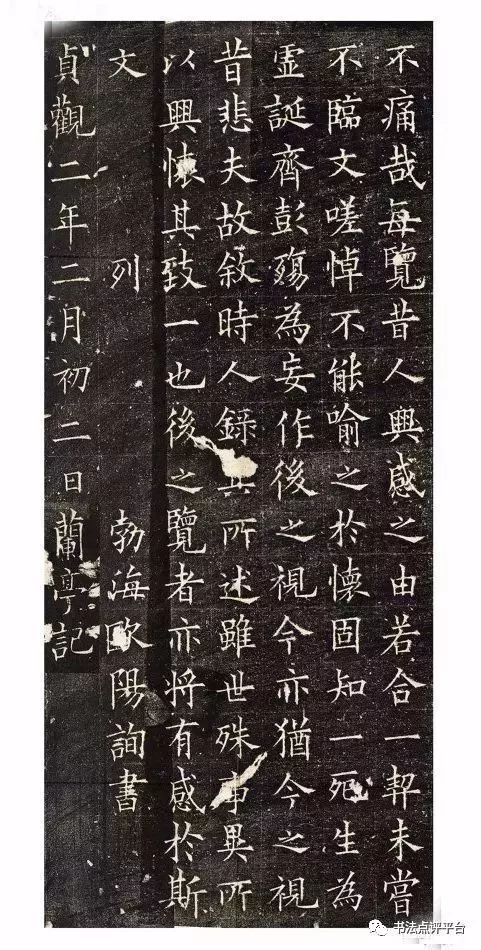 不痛哉每覽昔人興感之由若合一契未嘗
不臨文嗟悼不能喻之於懷固知一死生為
虛誕齊彭殤為妄作後之視今亦猶今之視
昔悲夫故敘時人錄其所述雖世殊事異所
以興懷其致一也後之覽者亦將有感於斯
文 列 勃海歐陽詢書
貞觀二年二月初二日蘭亭記
书法点评平台